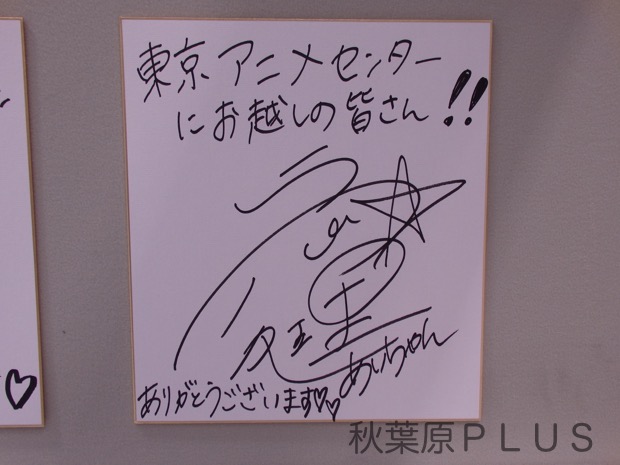 東京アニメセンター
にお越しの皆さん!!
あいちゃん
ありがとうございます♡♡
秋葉原PLUS